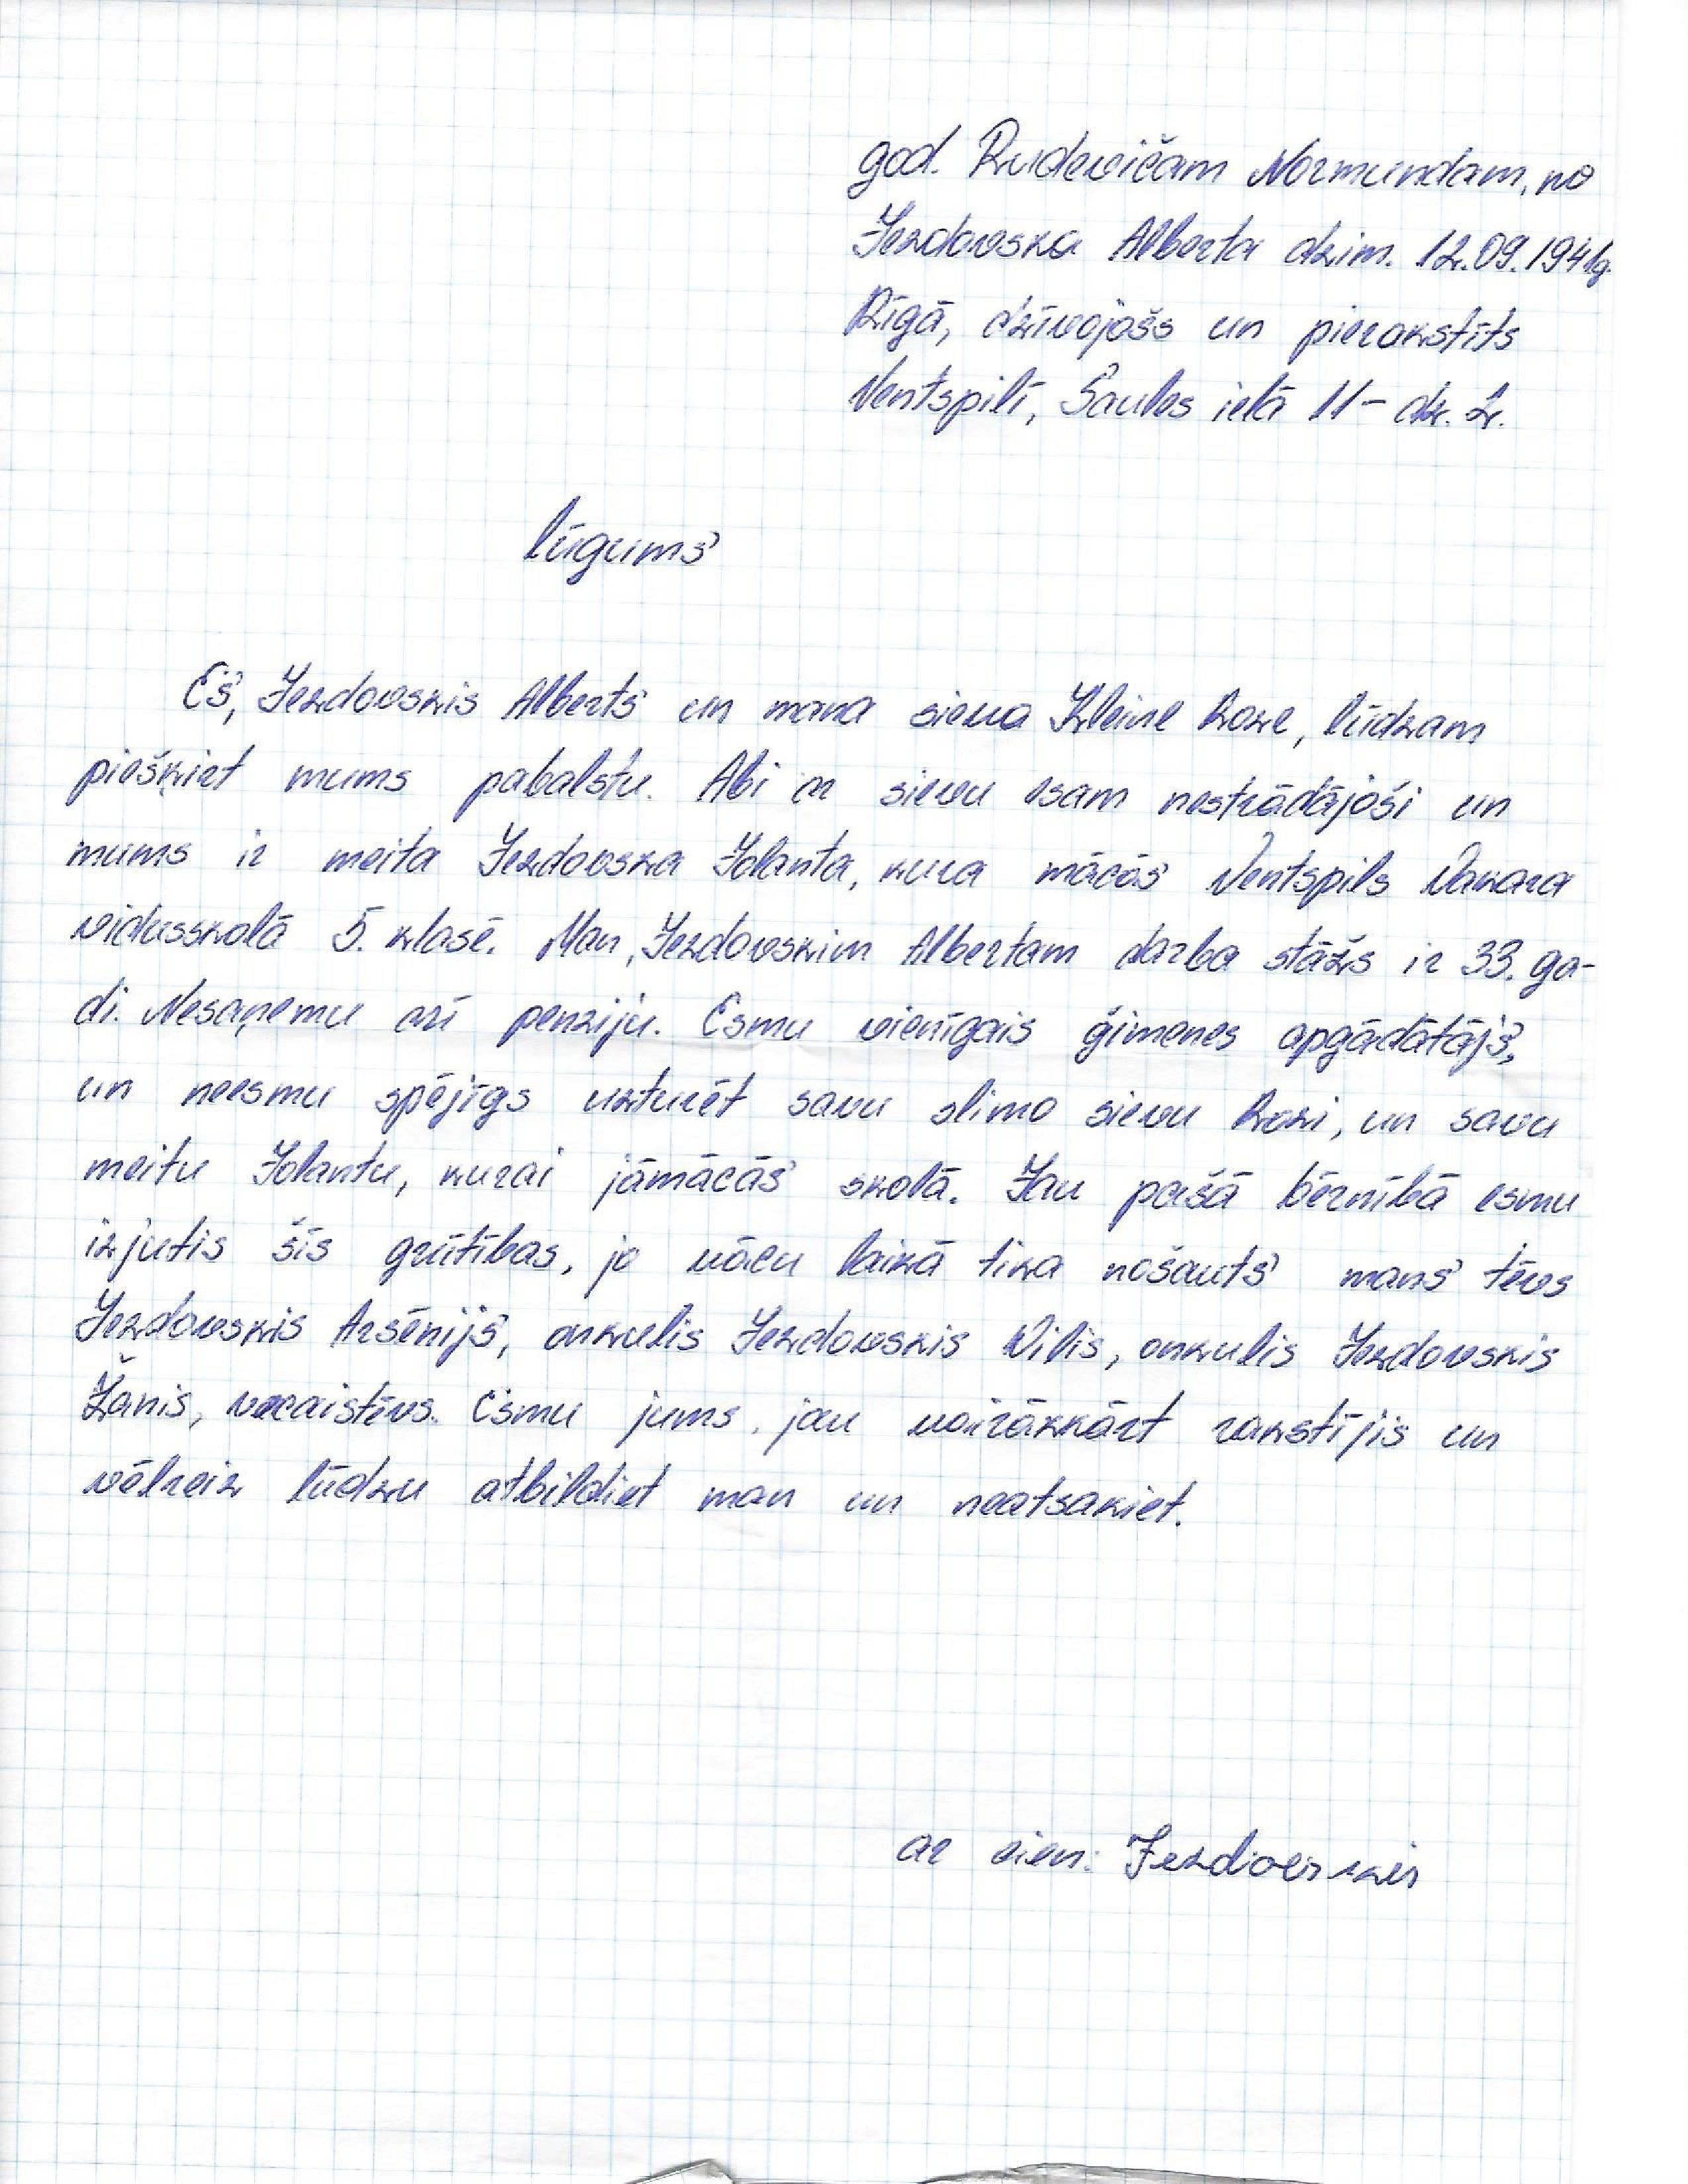 god. Rudevičam Normundam, no
Jezdovska Alberta dzim. 12.09.1941g.
Rīgā, dzīvojošs un pierakstīts
Ventspilī, Saules ielā 11 - dz. 2.
lūgums
Es, Jezdovskis Alberts un mana sieva Kleine Roze, lūdzam
piešķirt mums pabalstu. Abi ar sievu esam nestrādājoši un
mums ir meita Jezdovska Jolanta, kura mācās Ventspils Vakara
vidusskolā 5. klasē. Man, Jezdovskim Albertam darba stāžs ir 33. ga-
di. Nesaņemu arī penziju. Esmu vienīgais ģimenes apgādātājs,
un neesmu spējīgs uzturēt savu slimo sievu Rozi, un savu
meitu Jolantu, kurai jāmācās skolā. Jau pašā bērnībā esmu
izjutis šīs grūtības, jo vācu laikā tika nošauts mans tēvs
Jezdovskis Arsēnijs, onkulis Jezdovskis Vilis, onkulis Jezdovskis
Žanis, vecaistēvs. Esmu jums, jau vairākkārt rakstījis un
vēlreiz lūdzu atbildiet man un neatsakiet.
ar cien: Jezdovskis